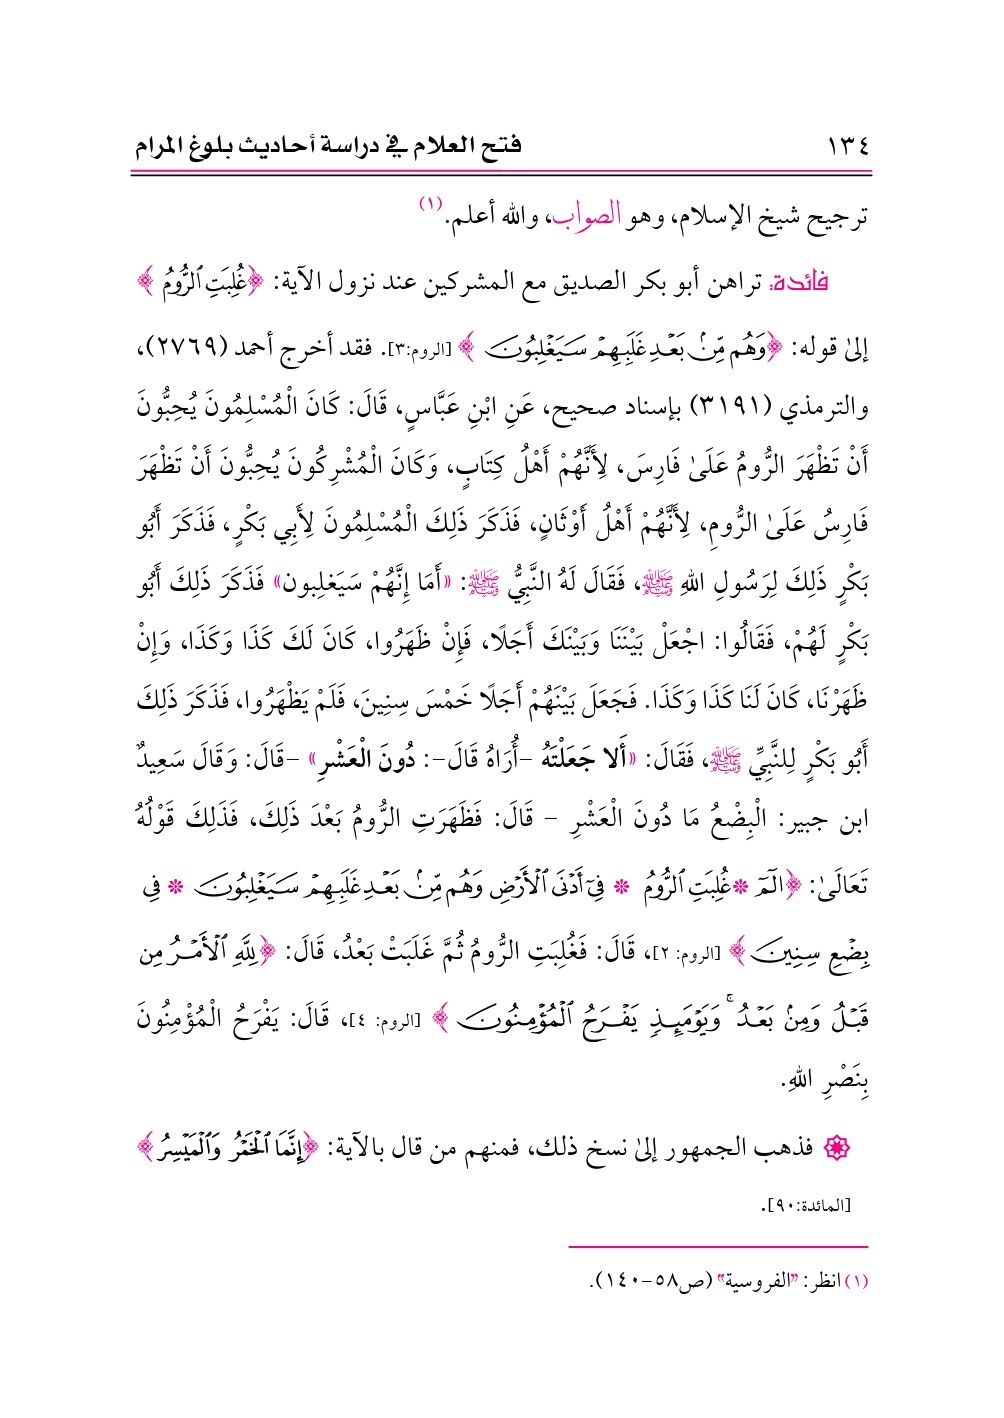 ١٣٤ فتح العلام في دراسة أحاديث بلوغ المرام
ترجيح شيخ الإسلام، وهو الصواب، والله أعلم.(١)
فائدة: تراهن أبو بكر الصديق مع المشركين عند نزول الآية: ﴿غُلِبَتِ ٱلرُّومُ﴾
إلىٰ قوله: ﴿وَهُم مِّنۢ بَعۡدِ غَلَبِهِمۡ سَيَغۡلِبُونَ﴾ [الروم:٣]. فقد أخرج أحمد (٢٧٦٩)،
والترمذي (٣١٩١) بإسناد صحيح، عَنِ ابْنِ عَبَّاسٍ، قَالَ: كَانَ الْمُسْلِمُونَ يُحِبُّونَ
أَنْ تَظْهَرَ الرُّومُ عَلَىٰ فَارِسَ، لِأَنَّهُمْ أَهْلُ كِتَابٍ، وَكَانَ الْمُشْرِكُونَ يُحِبُّونَ أَنْ تَظْهَرَ
فَارِسُ عَلَىٰ الرُّومِ، لِأَنَّهُمْ أَهْلُ أَوْثَانٍ، فَذَكَرَ ذَلِكَ الْمُسْلِمُونَ لِأَبِي بَكْرٍ، فَذَكَرَ أَبُو
بَكْرٍ ذَلِكَ لِرَسُولِ اللهِ ﷺ، فَقَالَ لَهُ النَّبِيُّ ﷺ: «أَمَا إِنَّهُمْ سَيَغلِبون» فَذَكَرَ ذَلِكَ أَبُو
بَكْرٍ لَهُمْ، فَقَالُوا: اجْعَلْ بَيْنَنَا وَبَيْنَكَ أَجَلًا، فَإِنْ ظَهَرُوا، كَانَ لَكَ كَذَا وَكَذَا، وَإِنْ
ظَهَرْنَا، كَانَ لَنَا كَذَا وَكَذَا. فَجَعَلَ بَيْنَهُمْ أَجَلًا خَمْسَ سِنِينَ، فَلَمْ يَظْهَرُوا، فَذَكَرَ ذَلِكَ
أَبُو بَكْرٍ لِلنَّبِيِّ ﷺ، فَقَالَ: «أَلا جَعَلْتَهُ -أُرَاهُ قَالَ-: دُونَ الْعَشْرِ» -قَالَ: وَقَالَ سَعِيدُ
ابن جبير: الْبِضْعُ مَا دُونَ الْعَشْرِ - قَالَ: فَظَهَرَتِ الرُّومُ بَعْدَ ذَلِكَ، فَذَلِكَ قَوْلُهُ
تَعَالَىٰ: ﴿الٓمٓ * غُلِبَتِ ٱلرُّومُ * فِيٓ أَدۡنَى ٱلۡأَرۡضِ وَهُم مِّنۢ بَعۡدِ غَلَبِهِمۡ سَيَغۡلِبُونَ * فِي
بِضۡعِ سِنِينَ﴾ [الروم: ٢]، قَالَ: فَغُلِبَتِ الرُّومُ ثُمَّ غَلَبَتْ بَعْدُ، قَالَ: ﴿لِلَّهِ ٱلۡأَمۡرُ مِن
قَبۡلُ وَمِنۢ بَعۡدُۚ وَيَوۡمَئِذٖ يَفۡرَحُ ٱلۡمُؤۡمِنُونَ﴾ [الروم: ٤]، قَالَ: يَفْرَحُ الْمُؤْمِنُونَ
بِنَصْرِ اللهِ.
فذهب الجمهور إلىٰ نسخ ذلك، فمنهم من قال بالآية: ﴿إِنَّمَا ٱلۡخَمۡرُ وَٱلۡمَيۡسِرُ﴾
[المائدة:٩٠].
(١) انظر: "الفروسية" (ص٥٨-١٤٠).